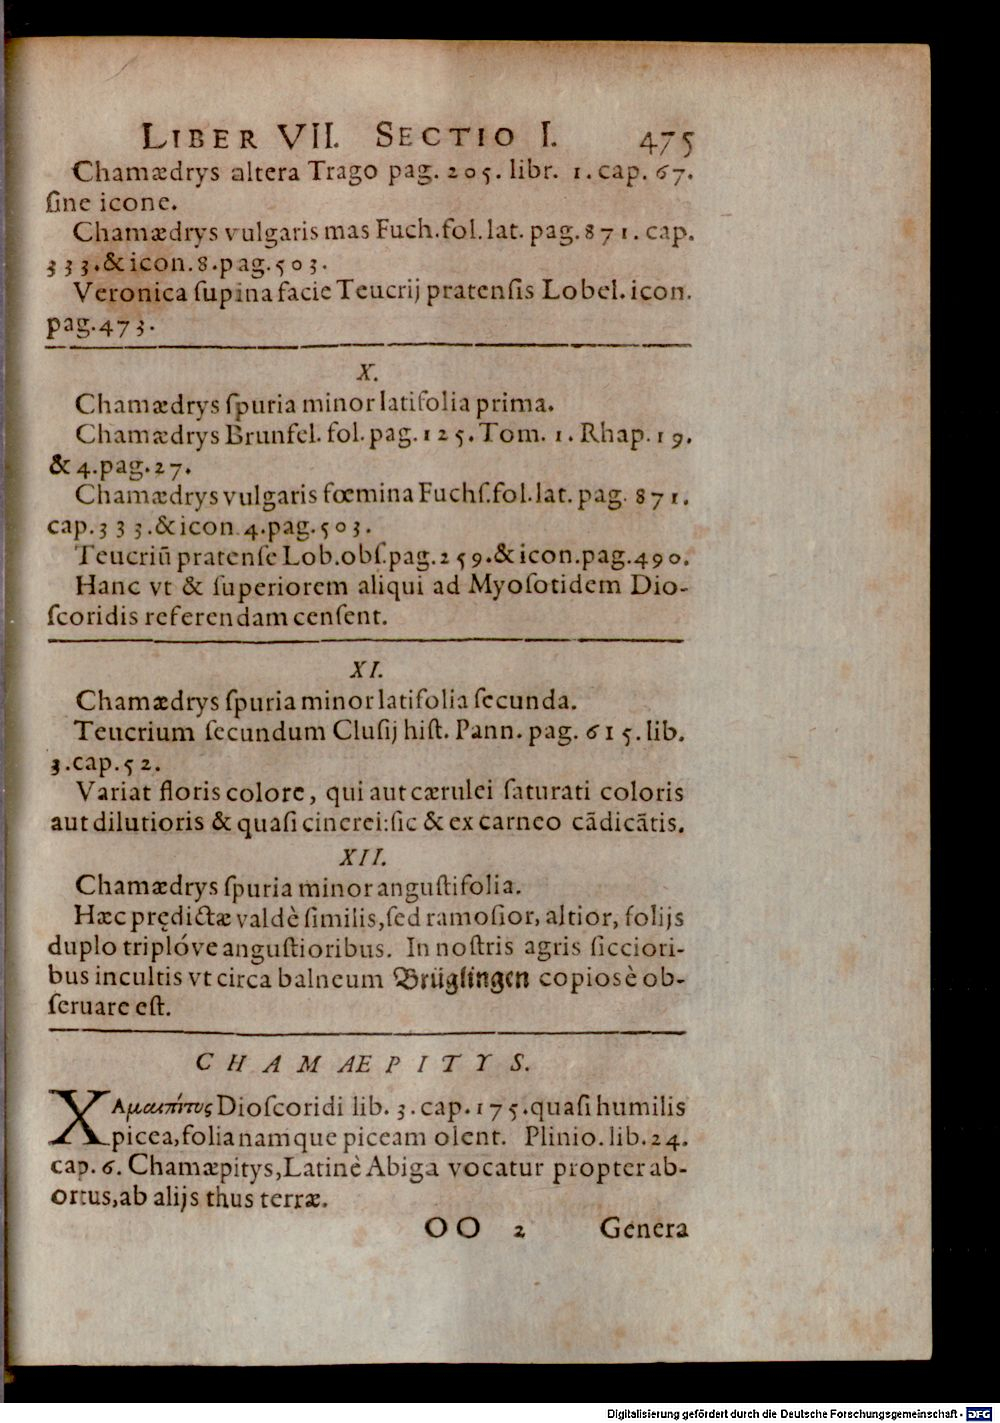 LIBER VII. SECTIO I. 475
Chamædrys altera Trago pag. 205. libr. 1. cap. 67.
ſine icone.
Chamædrys vulgaris mas Fuch. fol. lat. pag. 871. cap.
333. & icon. 8. pag. 503.
Veronica ſupina facie Teucrij pratenſis Lobel. icon.
pag. 473.
X.
Chamædrys ſpuria minor latifolia prima.
Chamædrys Brunfel. fol. pag. 125. Tom. 1. Rhap. 19.
& 4. pag. 27.
Chamædrys vulgaris fœmina Fuchſ. fol. lat. pag. 871.
cap. 333. & icon. 4. pag. 503.
Teucriũ pratenſe Lob. obſ. pag. 259. & icon. pag. 490.
Hanc vt & ſuperiorem aliqui ad Myoſotidem Dio-
ſcoridis referendam cenſent.
XI.
Chamædrys ſpuria minor latifolia ſecunda.
Teucrium ſecundum Cluſij hiſt. Pann. pag. 615. lib.
3. cap. 52.
Variat floris colore, qui aut cærulei ſaturati coloris
aut dilutioris & quaſi cinerei: ſic & ex carneo cãdicãtis.
XII.
Chamædrys ſpuria minor anguſtifolia.
Hæc prędictæ valdè ſimilis, ſed ramoſior, altior, folijs
duplo triplóve anguſtioribus. In noſtris agris ſicciori-
bus incultis vt circa balneum Brüglingen copiosè ob-
ſeruare eſt.
CHAMAEPITYS.
ΧΑμαιπίτυς Dioſcoridi lib. 3. cap. 175. quaſi humilis
picea, folia namque piceam olent. Plinio. lib. 24.
cap. 6. Chamæpitys, Latinè Abiga vocatur propter ab-
ortus, ab alijs thus terræ.
OO 2 Genera
Digitalisierung gefördert durch die Deutsche Forschungsgemeinschaft - DFG